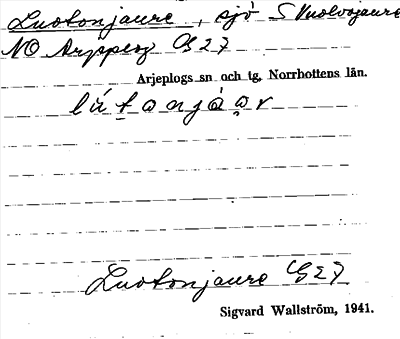 Luotonjaure, sjö S Vuolvojaure
NO Arppeog G27
Arjeplogs sn och tg, Norrbottens län.
lú̜tanjáar
Luotonjaure G27
Sigvard Wallström, 1941.